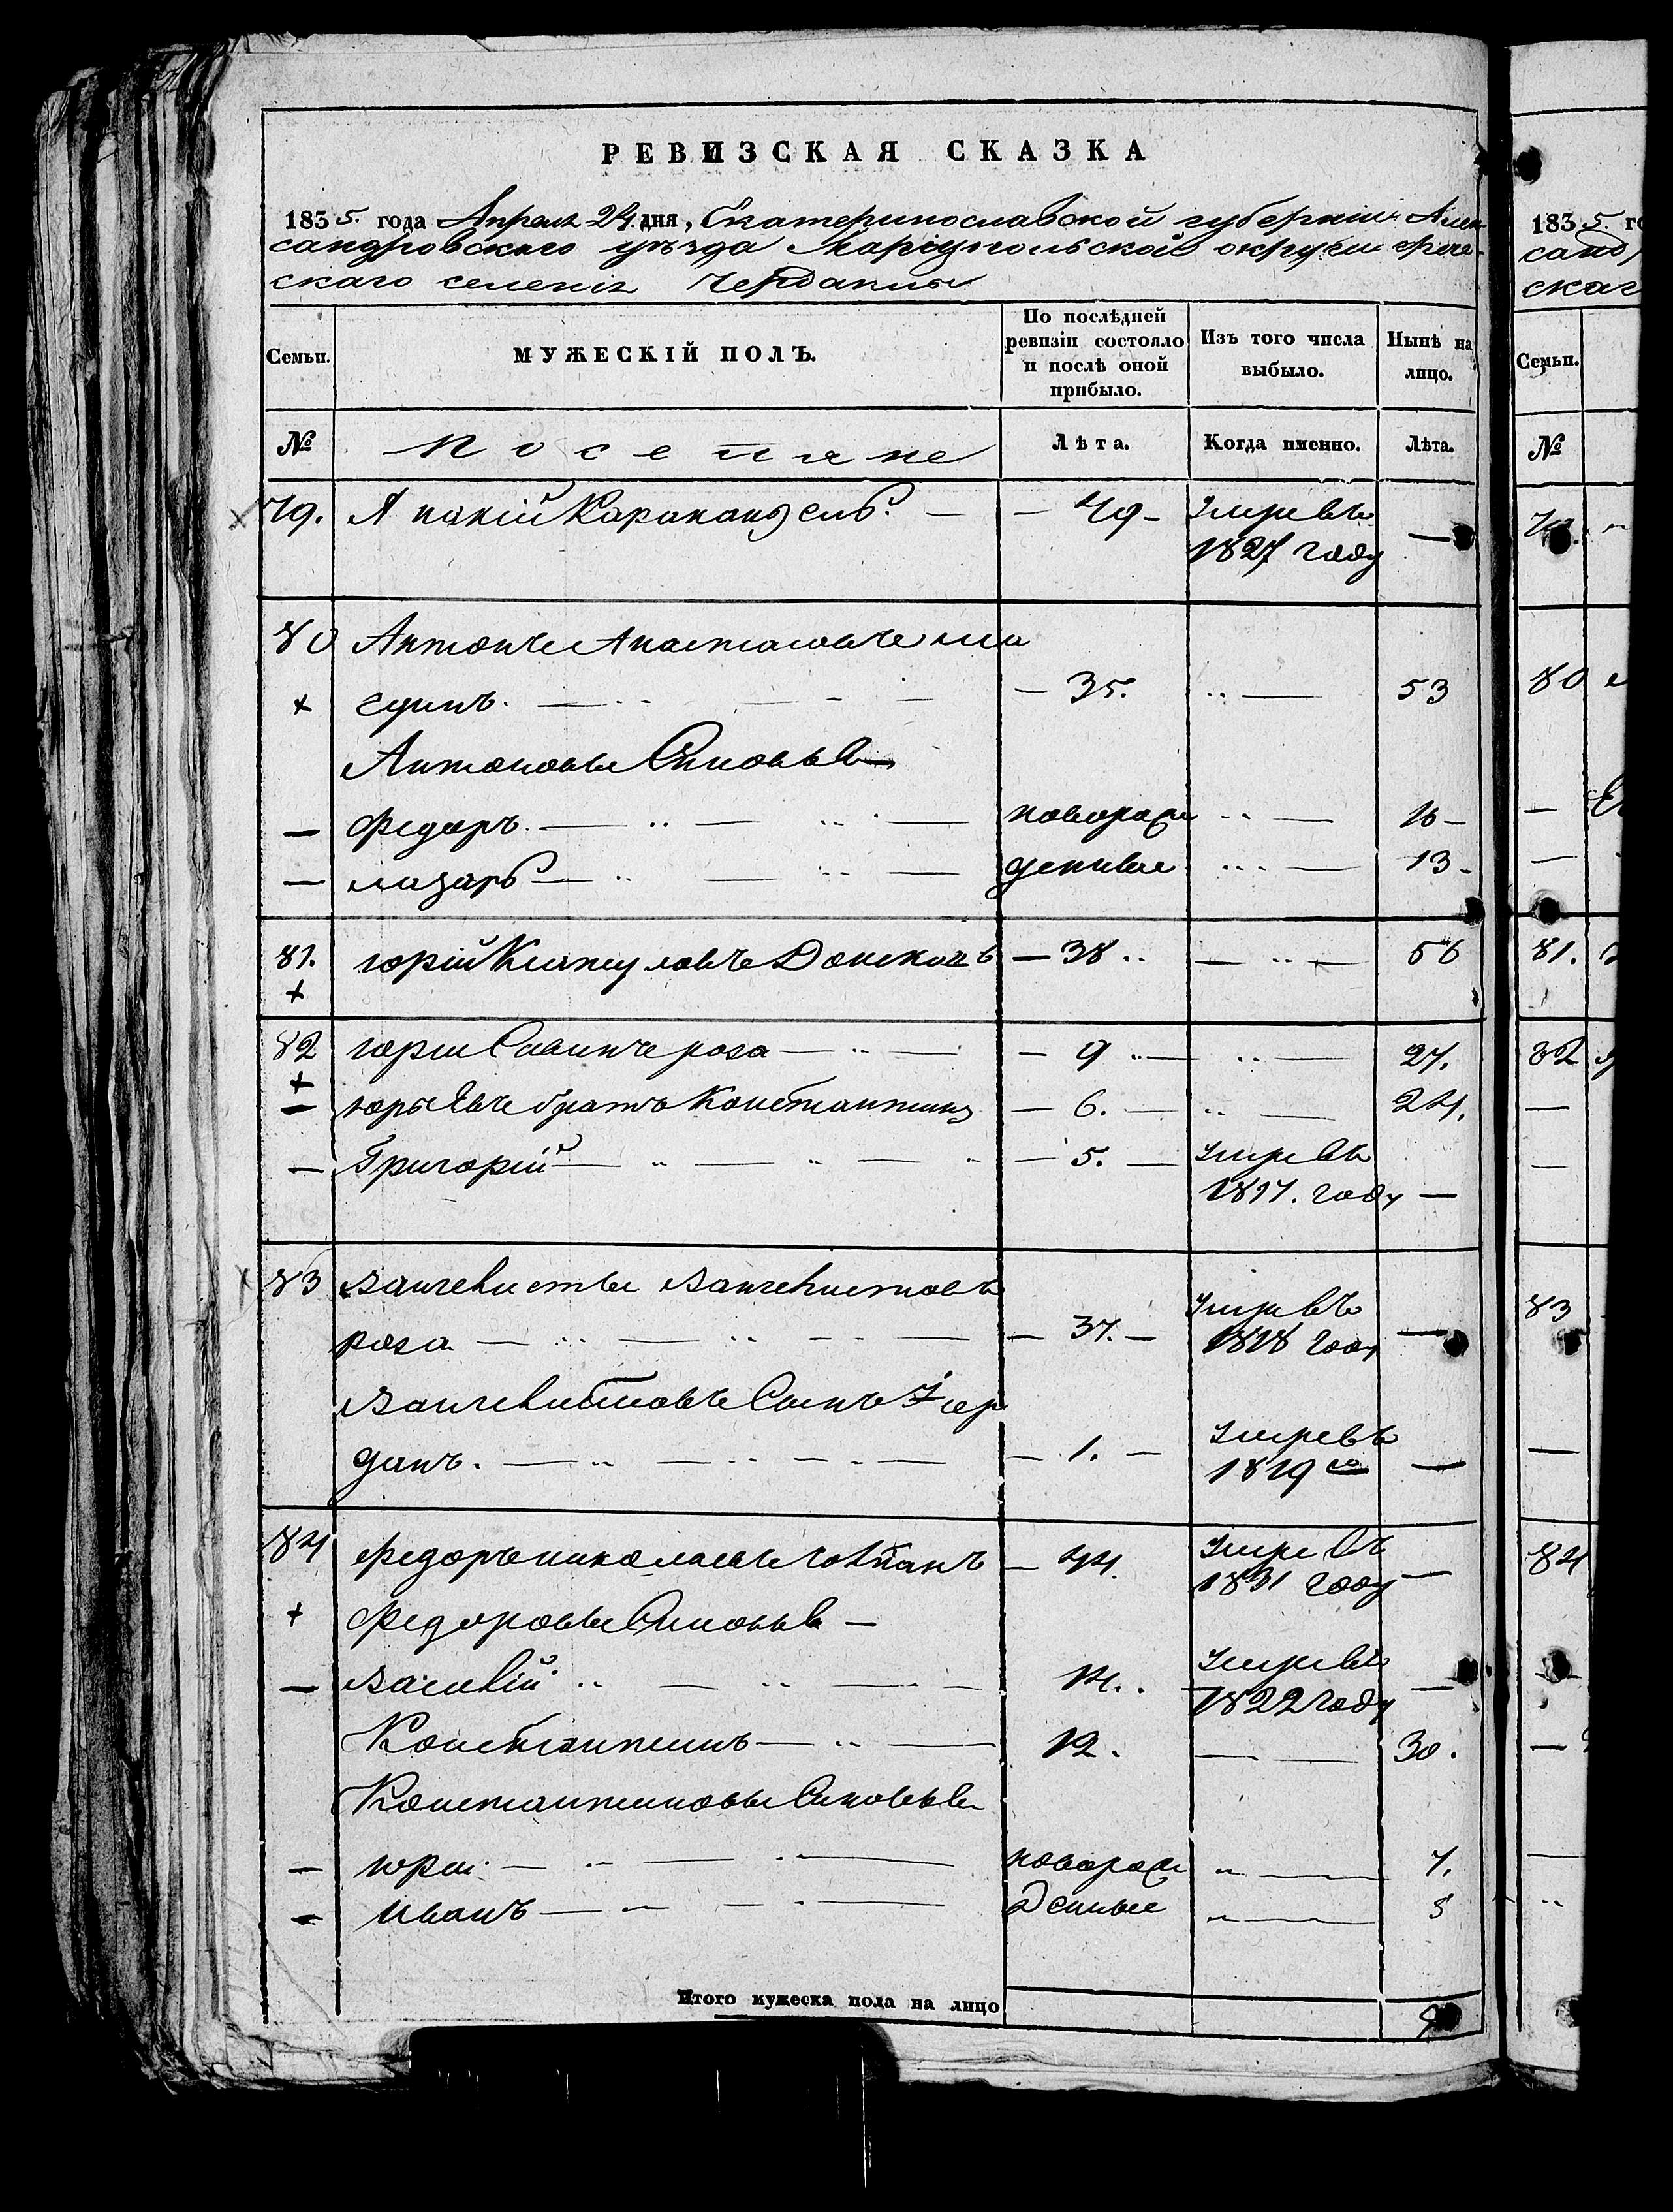 РЕВИЗСКАЯ СКАЗКА
1835. года Апреля 24 дня, Екатеринославской губернии Алек
сандровского уѣзда Мариупольской округи Грече
скаго селенія Чердаклы
Семьи. МУЖЕСКІЙ ПОЛЪ. По послѣдней ревизіи состояло и послѣ оной прибыло. Изъ того числа выбыло. Нынѣ на лицо.
№ Поселяне Лѣта. Когда именно. Лѣта.
79. — 49 — умре въ —
1827 году
80 Антонъ Анастасовъ
— 35. 53
Антоновы Сыновья
— Федоръ новорож 16 —
— лазарь денные 13 —
81. юрій — 38 56
82 юрии Савинъ роза — 9 27.
— юрьевъ братъ Константинъ — 6. — 24.
— Григорій — 5. — умре въ
1817. году —
83
роза — 37. — умре въ 1818 году —
Сынъ Иор
данъ. — 1. — умре въ 1819 го —
84 Федоръ николаевъ — 44. умре въ
1831 году —
Федоровы Сыновья —
— Василій 14. умре въ
1822 году —
Константинъ — 12. 30.
Константиновы Сыновья
— юрии новорож 7.
— иванъ денные 3
Итого мужеска пола на лицо
1835. го
санд
скаг
Семьи.
№
80
81.
82
83
84